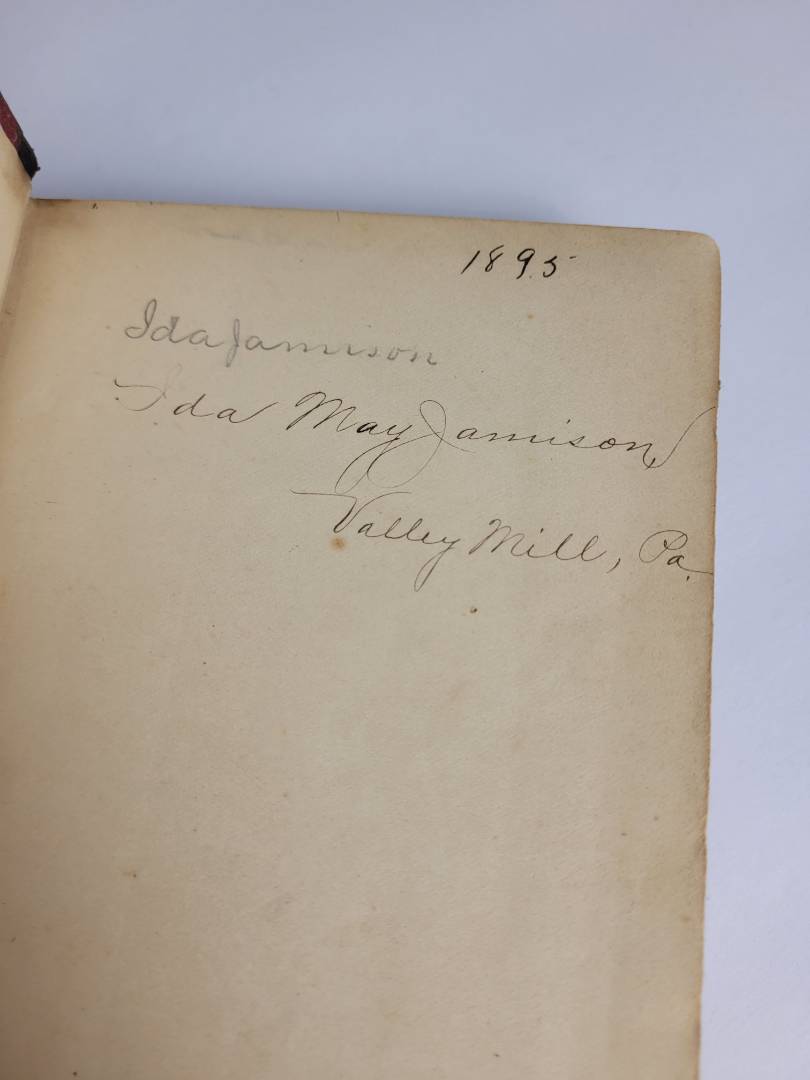 1895
Ida Jamison
Ida May Jamison,
Valley Mill, Pa.